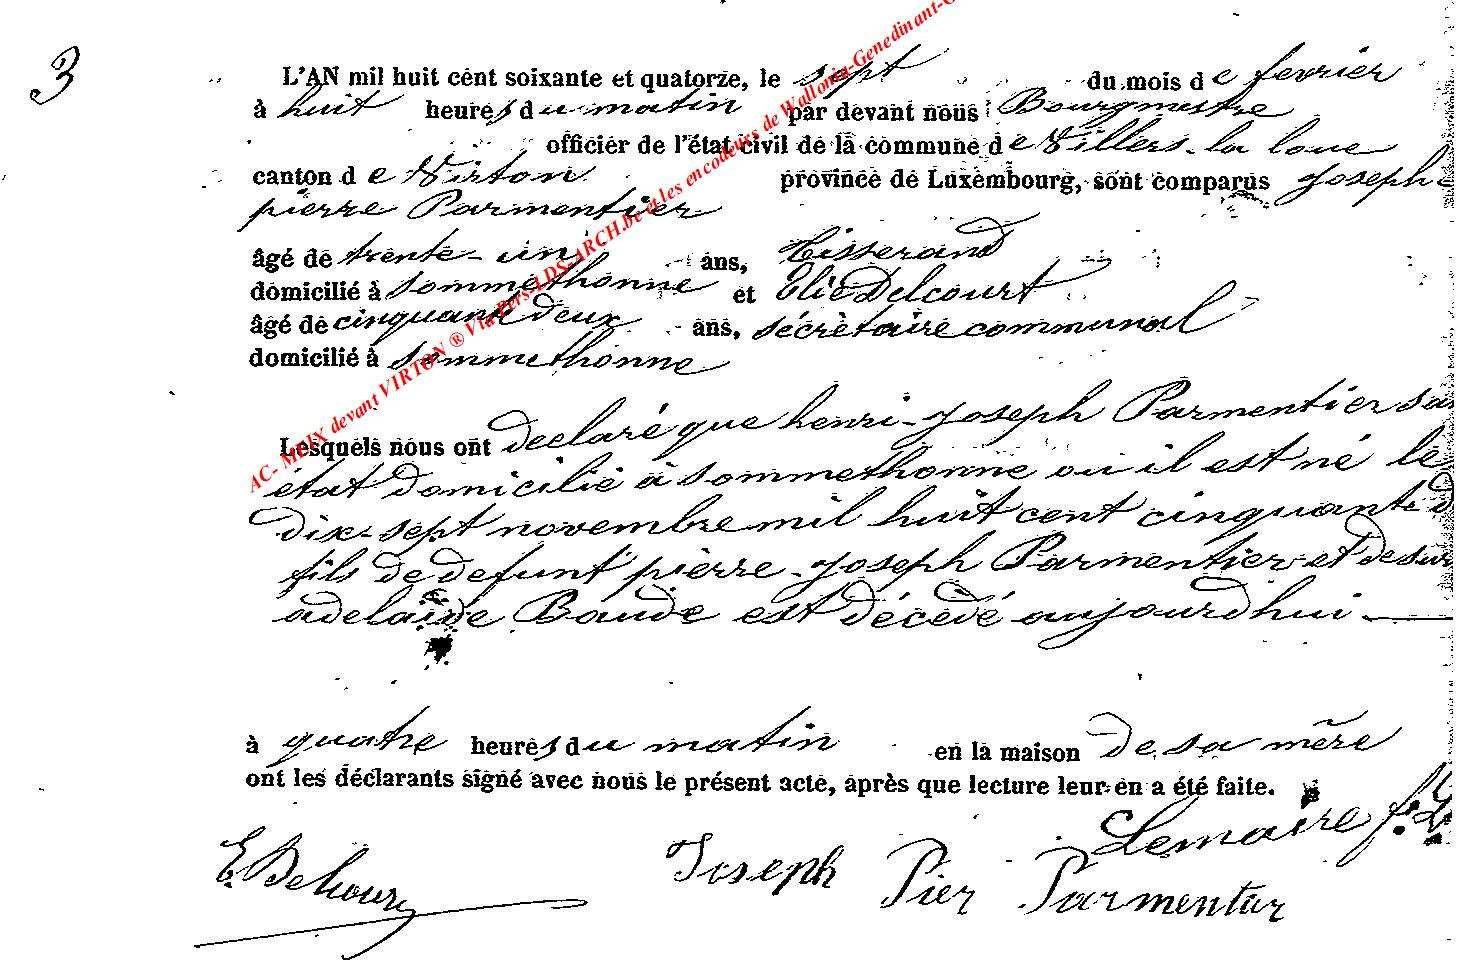 3
L'AN mil huit cent soixante et quatorze, le sept du mois de fevrier
à huit heures du matin par devant nous Bourgmestre
officier de l'état civil de la commune de Villers-la loue
canton de Virton province de Luxembourg, sont comparus Joseph
pierre Parmentier
âgé de trente-un ans, Tisserand
domicilié à sommethonne et Elie Delcourt
âgé de cinquante deux ans, sécrètaire communal
domicilié à sommethonne
Lesquels nous ont declaré que henri-Joseph Parmentier san
état domicilié à sommethonne ou il est né le
dix-sept novembre mil huit cent cinquante d
fils de defunt pierre-Joseph Parmentier et de
adelaide Baude est décédé aujourdhui
à quatre heures du matin en la maison de sa mère
ont les déclarants signé avec nous le présent acte, après que lecture leur en a été faite.
Lemaire f.
E. Delcourt Joseph Pier Parmentier
AC- MEIX devant VIRTON ® Via Pers-LDS-ARCH.be et les encodeurs de Wallonia-Genedinant-G